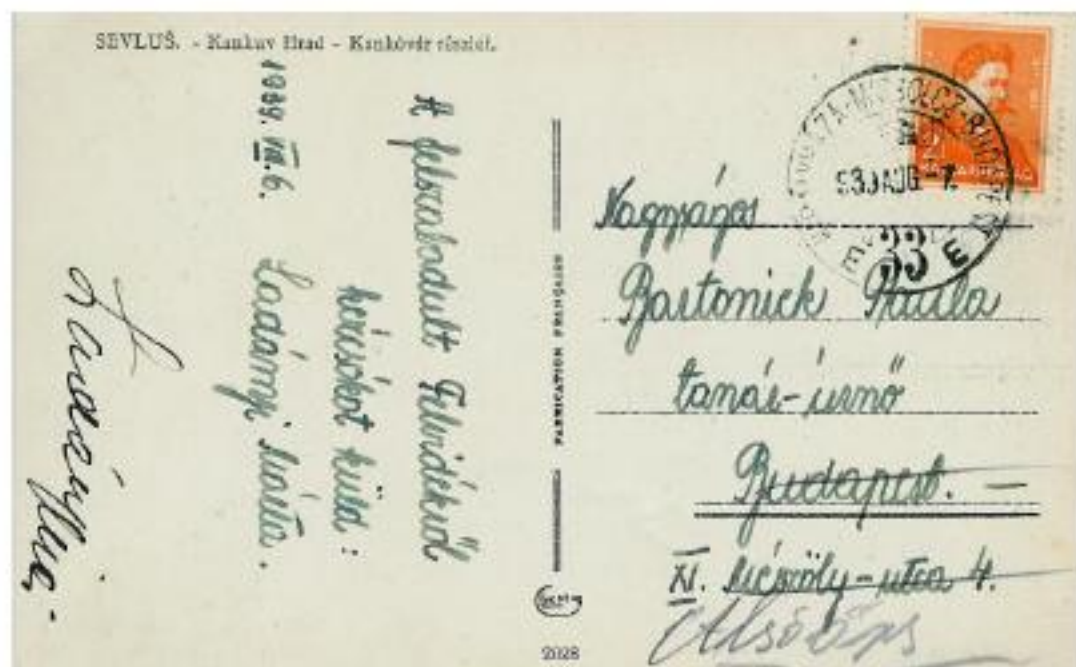 SEVLUŠ. - Kankuv Hrad - Kankóvár részlet.
A felszabadult Felvidékről
kézcsókot küld:
Ladányi Márta.
1939. VIII. 6.
FABRICATION FRANÇAISE
2028
939 AUG -7.
33
Nagyságos
Bartonick Paula
tanár-úrnő
Budapest. -
XI. Mészöly-utca 4.
Alsóörs